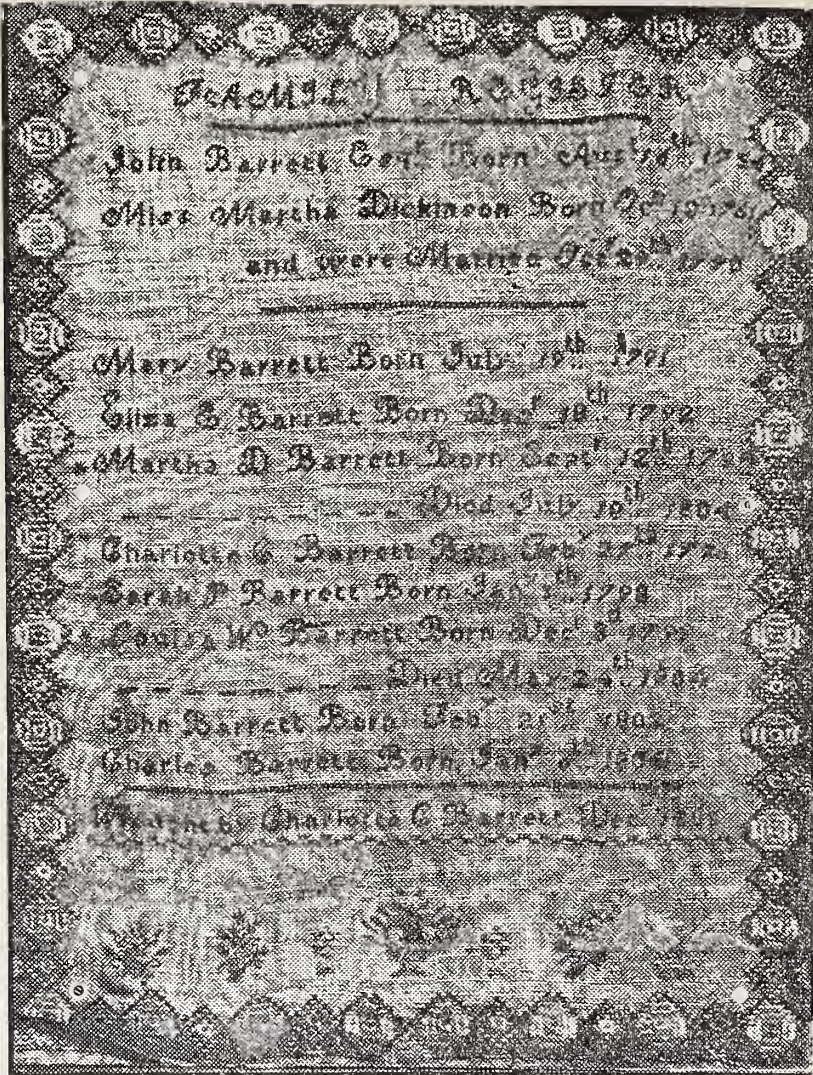 FAMILY REGISTER
John Barrett Esqr Born Augt
Miss Martha Dickinson Born Oct
and were Married
Mary Barrett Born July 19th 1791
Eliza E Barrett Born Decr 18th 1792
Martha D Barrett Born Sept 12th
Died July 10th 1804
Charlotte C Barrett Born Feby
Sarah P Barrett Born Jany 1798
Louisa W Barrett Born Decr 3d
Died May
John Barrett Born Feby 1802
Charles Barrett Born Jany
Wrought by Charlotte C Barrett